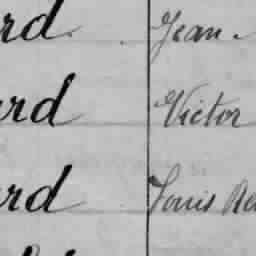 rd. Jean.
rd Victor
rd Louis